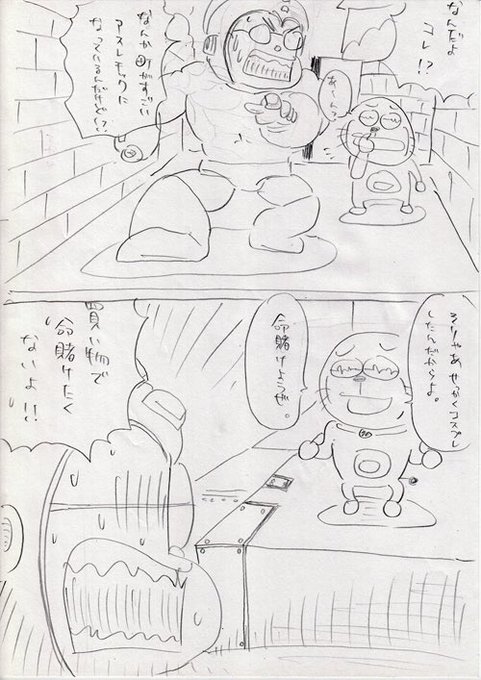 なんだよ
コレ!?
あーん?
なんか町がすごい
アスレチックに
なっているんだけど!!
そりゃあせっかくコスプレ
したんだからよ。
命賭けようぜ。
買い物で
命賭けたく
ないよ!!